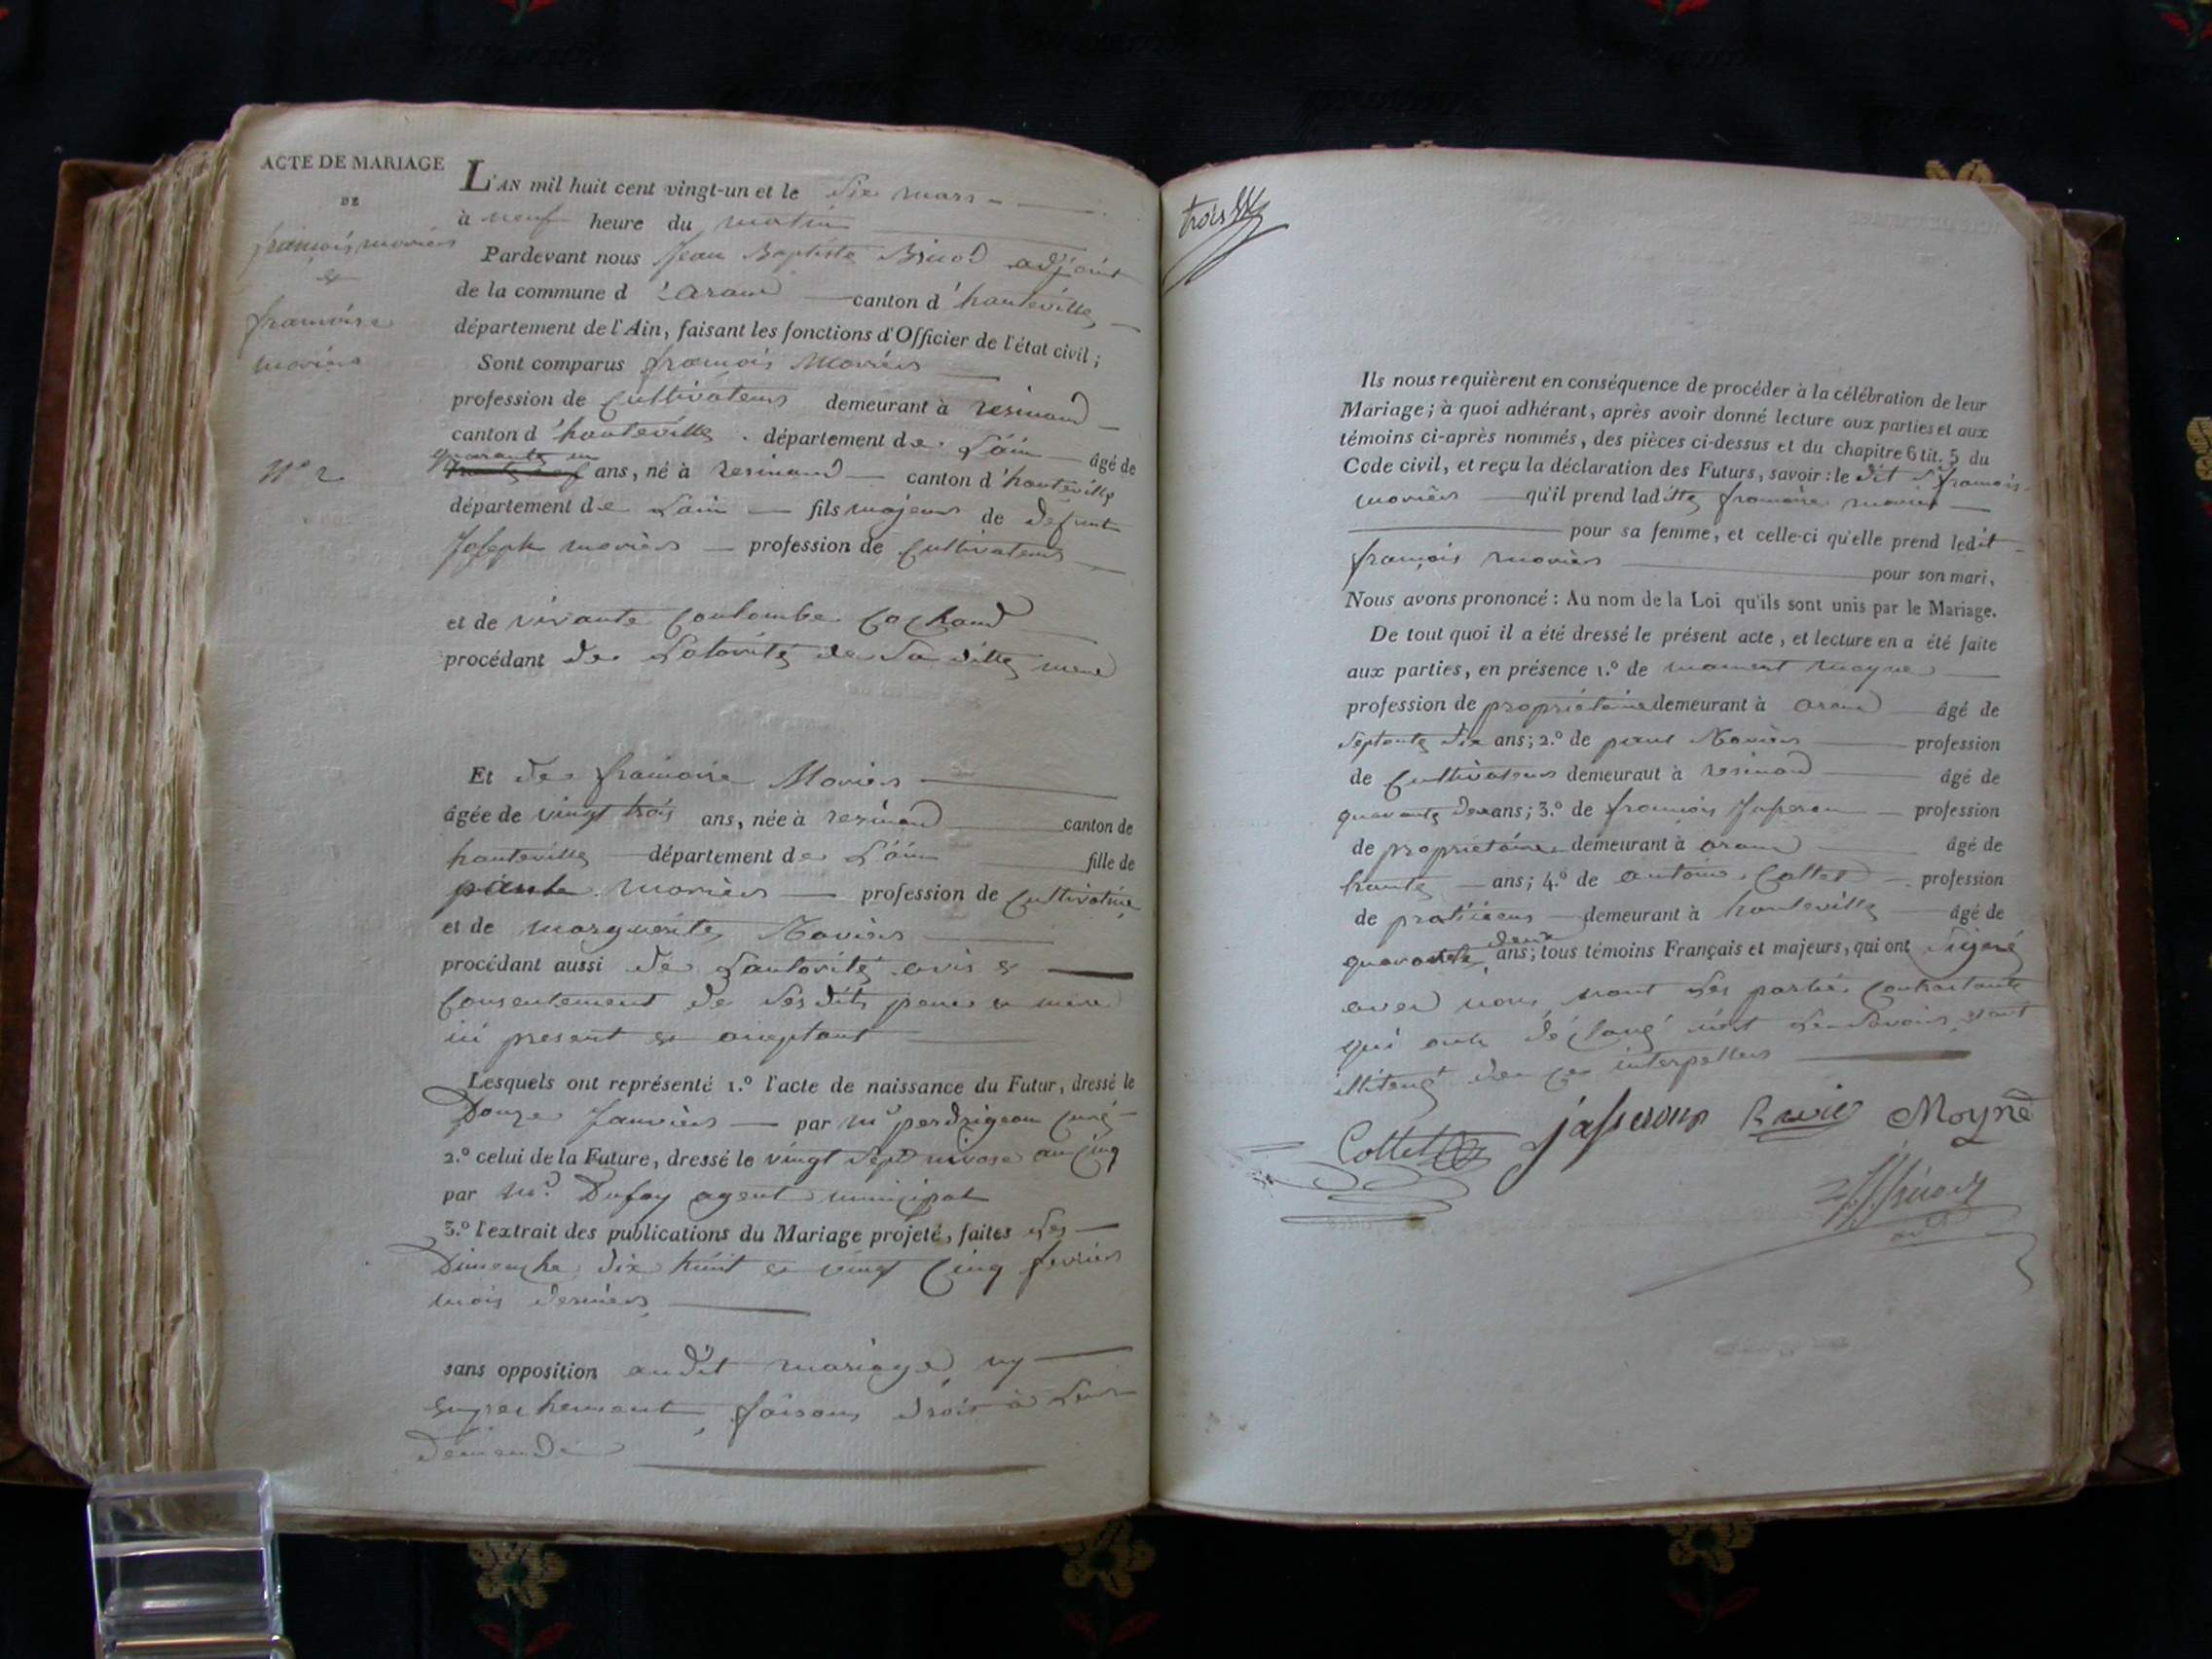 ACTE DE MARIAGE
DE
françois moriers
et
françoise
moriers
N° 2
L'AN mil huit cent vingt-un et le Six mars
à neuf heure du matin
Pardevant nous Jean Baptiste adjoint
de la commune d'aranc canton d'hauteville
département de l'Ain, faisant les fonctions d'Officier de l'état civil ;
Sont comparus françois Moriers
profession de Cultivateur demeurant à resinand
canton d'hauteville département de Lain âgé de
quarante un
ans, né à resinand canton d'hauteville
département de Lain fils majeur de defunt
Joseph moriers profession de Cultivateur
et de vivante Coulombe Cochand
procédant de Lotorité de Sa ditte mere
Et de françoise Moriers
âgée de vingt trois ans, née à resinand canton de
hauteville département de Lain fille de
moriers profession de Cultivateur
et de marguerite
procédant aussi de Lautorité avis et
Consentement de Ses dits pere et mere
ici present et aceptant
Lesquels ont représenté 1.° l'acte de naissance du Futur, dressé le
Douze Janviers par Mr perdrigeon Curé
2.° celui de la Future, dressé le vingt Sept nivose an Cinq
par Mr. Dufay agent municipal
3.° l'extrait des publications du Mariage projeté, faites Les
Dimanche dix huit et vingt Cinq fevriers
mois derniers
sans opposition audit mariage ny
Empechement, faisant droit à Leur
demande
trois
Ils nous requièrent en conséquence de procéder à la célébration de leur
Mariage ; à quoi adhérant, après avoir donné lecture aux parties et aux
témoins ci-après nommés, des pièces ci-dessus et du chapitre 6 tit. 5 du
Code civil, et reçu la déclaration des Futurs, savoir : le dit françois
moriers qu'il prend laditte françoise moriers
pour sa femme, et celle-ci qu'elle prend ledit
françois moriers pour son mari,
Nous avons prononcé : Au nom de la Loi qu'ils sont unis par le Mariage.
De tout quoi il a été dressé le présent acte, et lecture en a été faite
aux parties, en présence 1.° de moyne
profession de propriétaire demeurant à aranc âgé de
Septante Six ans ; 2.° de paul
profession
de Cultivateur demeurant à resinand âgé de
quarante ans ; 3.° de françois Jasseron profession
de propriétaire demeurant à aranc âgé de
trante ans ; 4.° de antoine Collet profession
de praticiens demeurant à hauteville âgé de
quarante deux ans ; tous témoins Français et majeurs, qui ont Signé
avec nous, nont Les partie Contractante
qui ont déclaré Le Savoir
de ce interpellers
Collet Jasseron Moyne